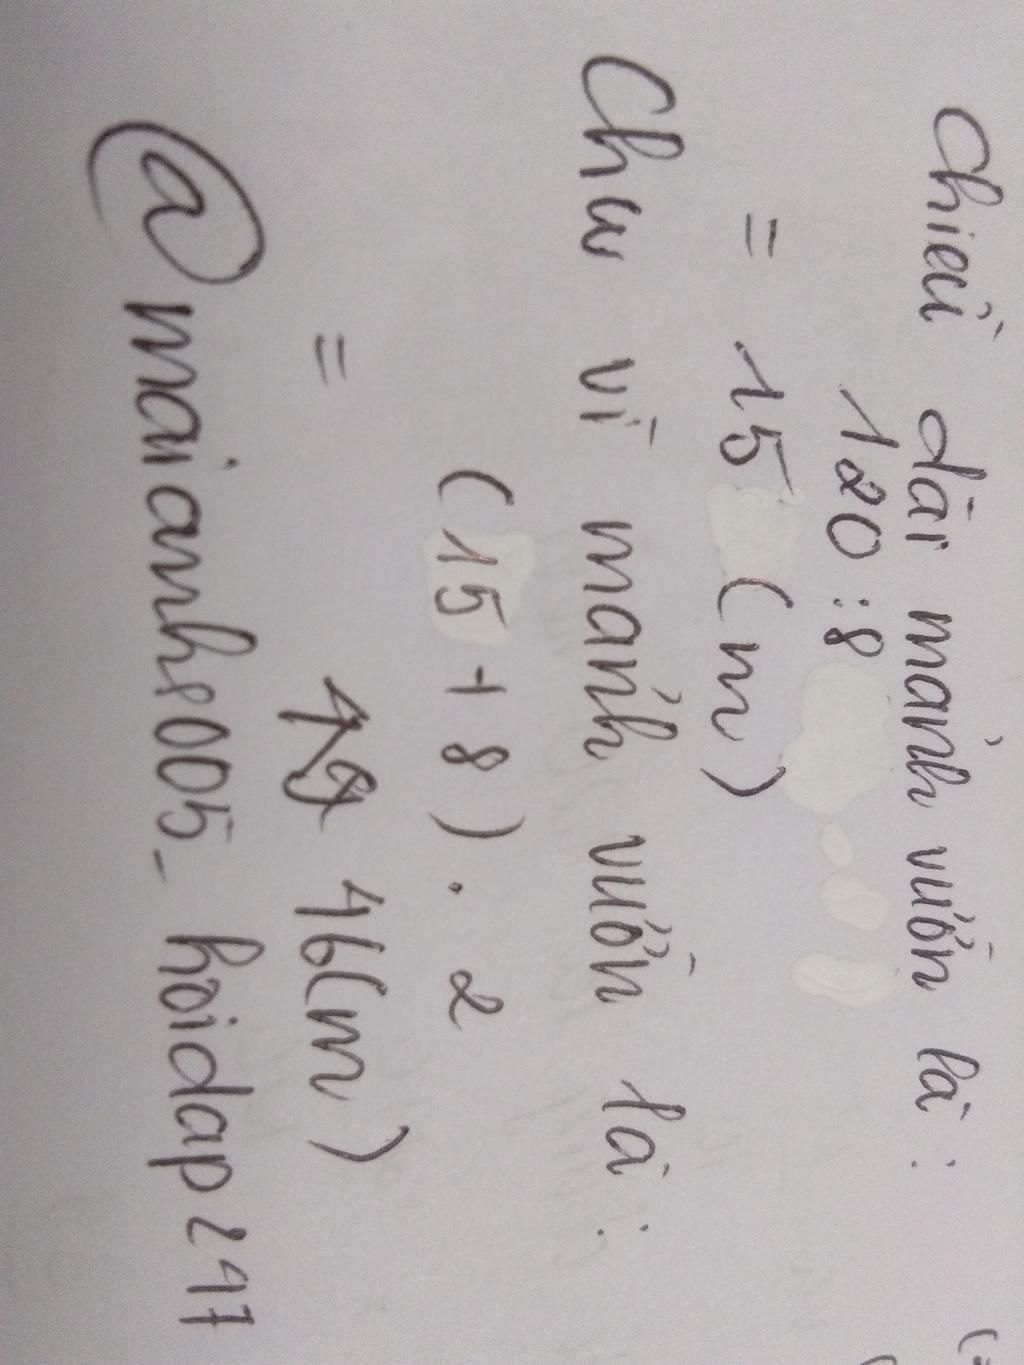 Chiều dài mảnh vườn là :
120 : 8
= 15 (m)
Chu vi mảnh vườn là :
(15 + 8) . 2
= 46 (m)
@maianh8005_hoidap247